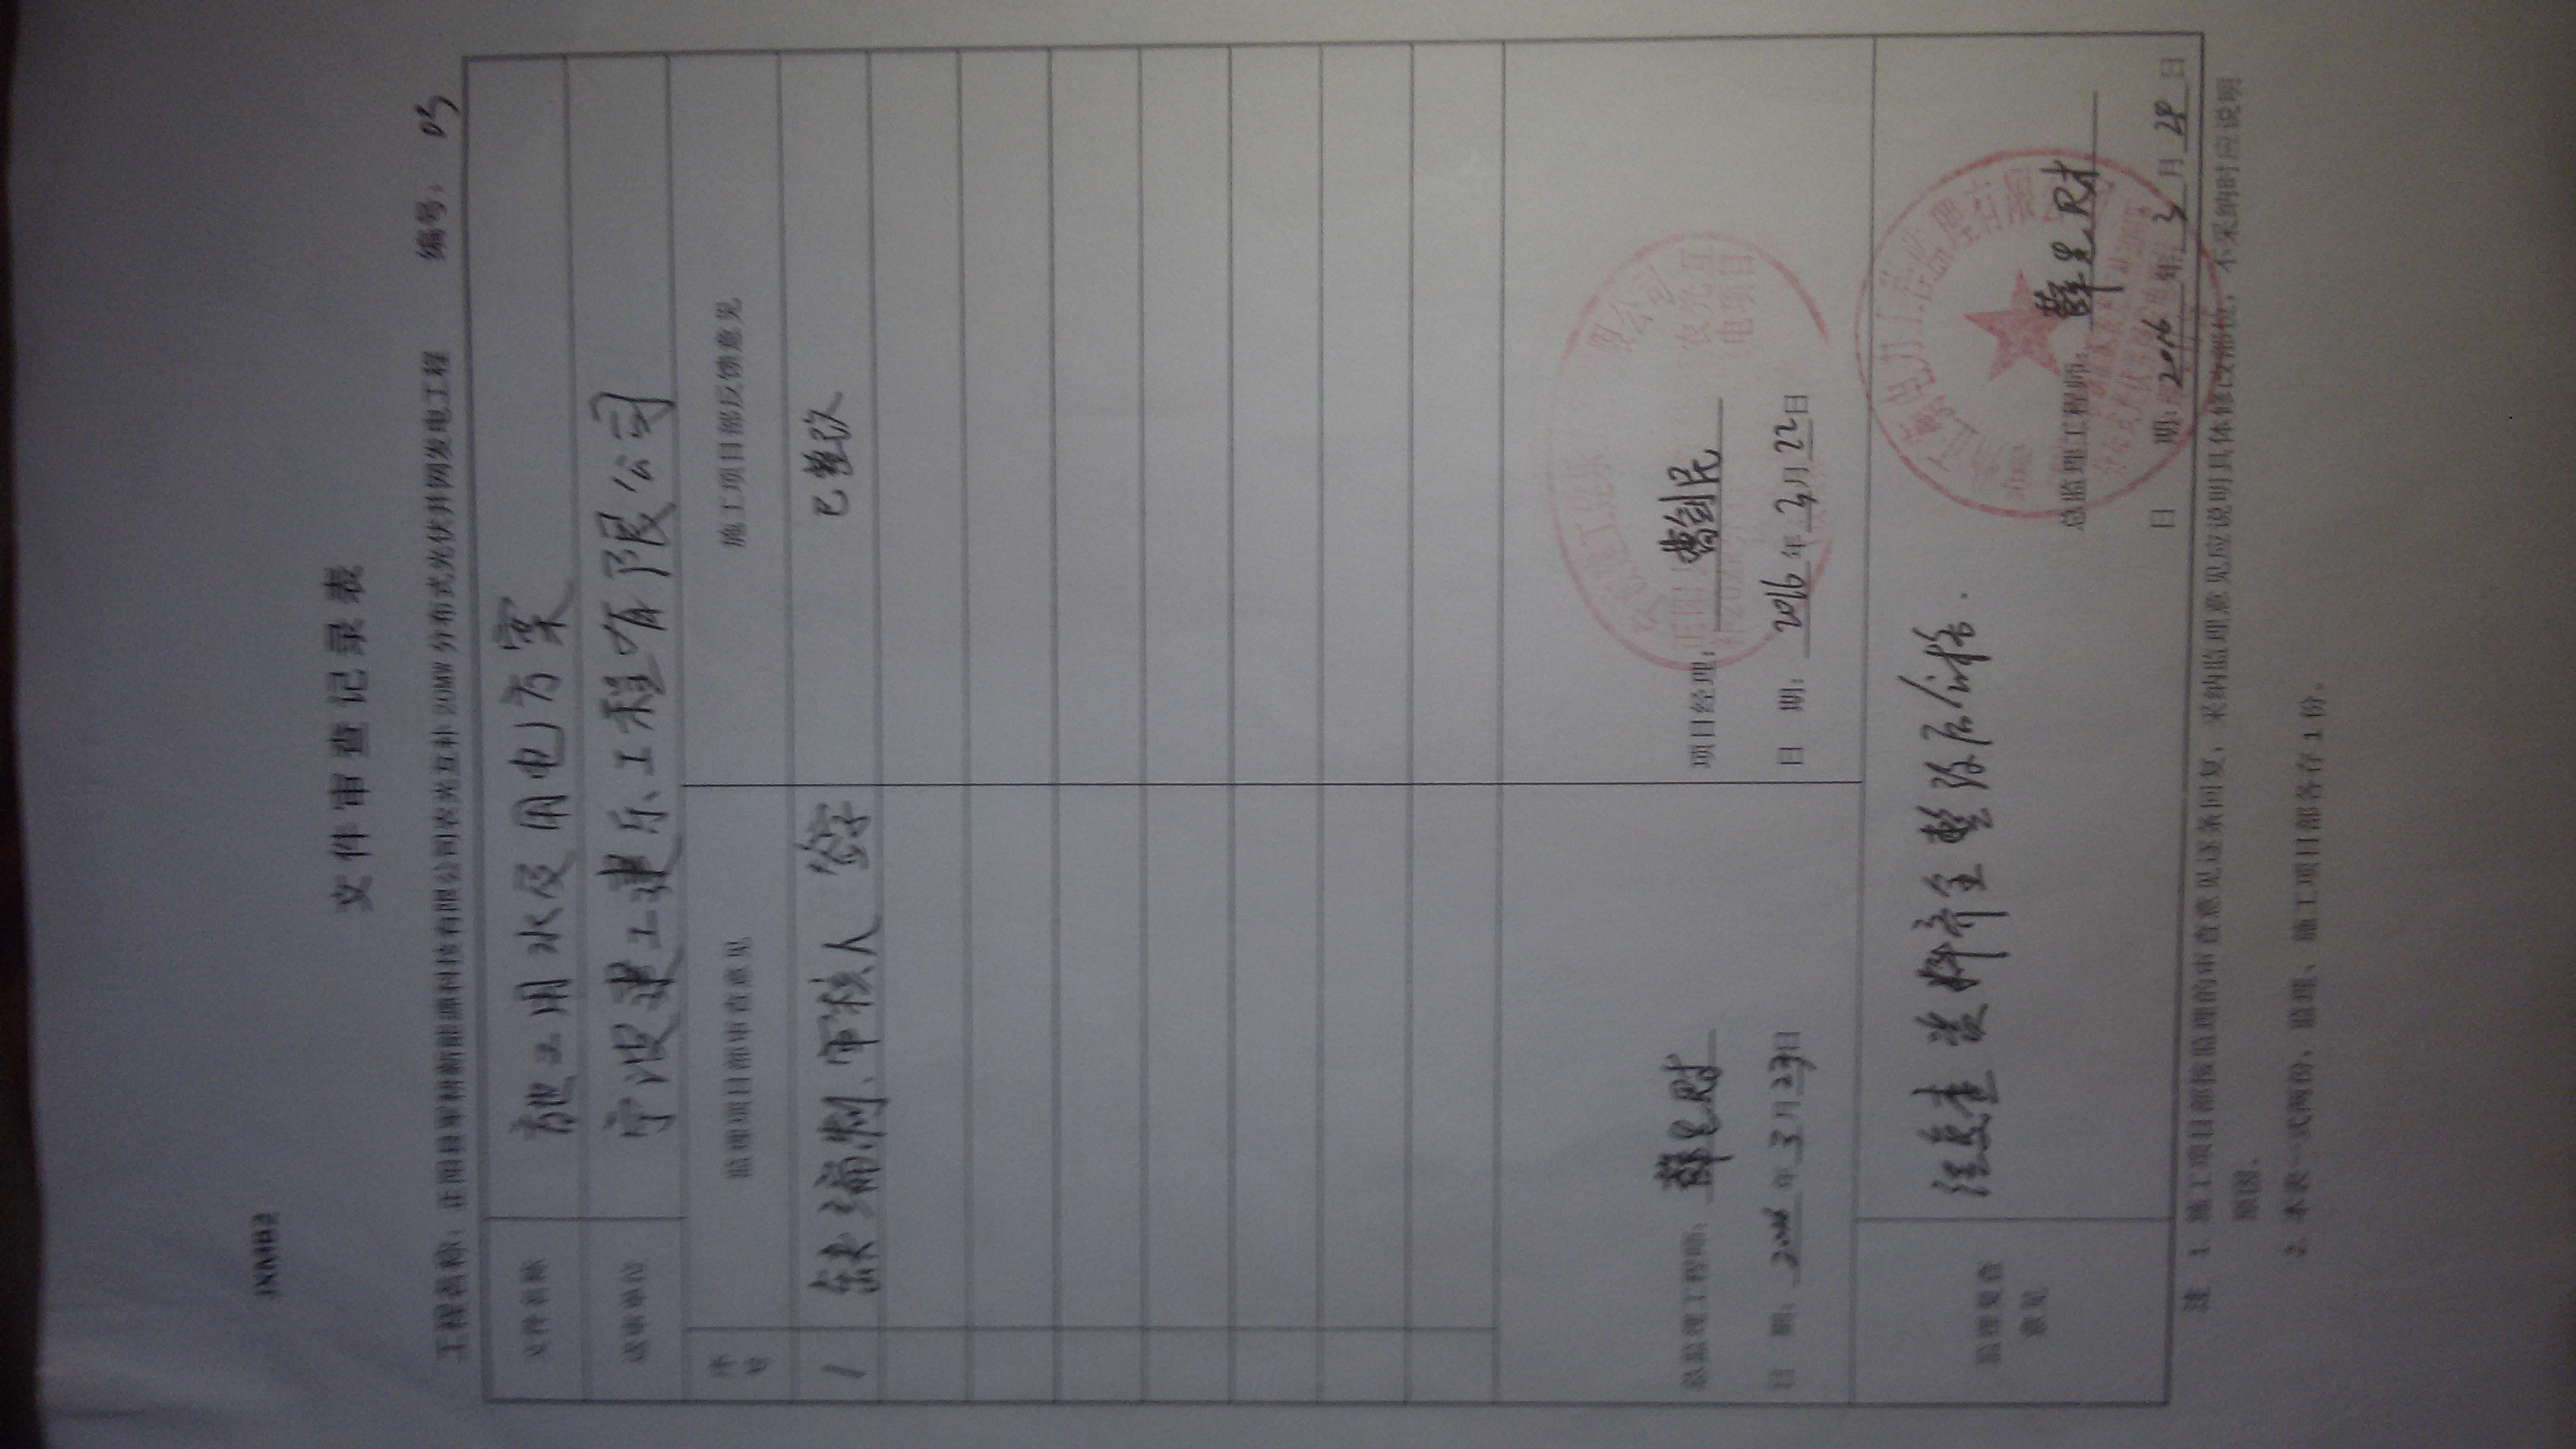 JXMH2
文件审查记录表
工程名称：正阳县军耕新能源科技有限公司农光互补20MW分布式光伏并网发电工程 编号： 03
文件名称 施工用水及用电方案
送审单位 宁波建工建乐工程有限公司
序号 监理项目部审查意见 施工项目部反馈意见
1 缺编制、审核人 签字 已整改
总监理工程师： 项目经理：
日 期： 2016 年 3 月 23 日 日 期： 2016 年 3 月 22 日
监理复查意见 经复查 资料齐全 整改后合格.
总监理工程师：
日 期： 2016 年 3 月 28 日
注 1. 施工项目部按监理的审查意见逐条回复，采纳监理意见应说明具体修改部位，不采纳时应说明
原因。
2. 本表一式两份，监理、施工项目部各存1份。